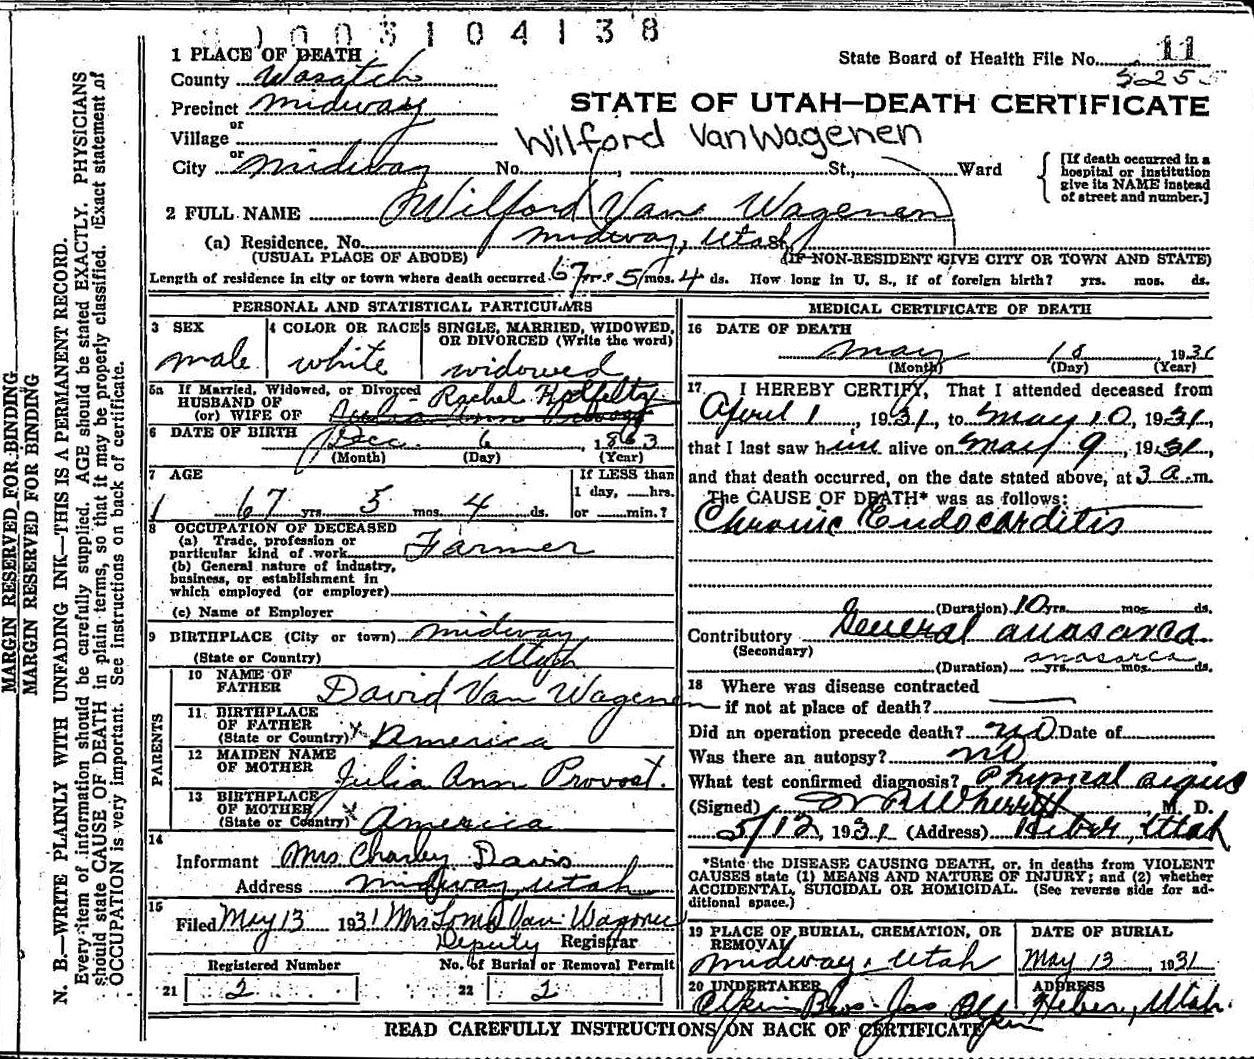 1003104138
1 PLACE OF DEATH
State Board of Health File No. 11
County Wasatch
525
Precinct Midway
STATE OF UTAH—DEATH CERTIFICATE
or
Village
Wilford VanWagenen
or
City Midway No. , St., Ward
{ [If death occurred in a
hospital or institution
give its NAME instead
of street and number.]
2 FULL NAME Wilford Van Wagenen
(a) Residence, No. Midway, Utah
(USUAL PLACE OF ABODE) (IF NON-RESIDENT GIVE CITY OR TOWN AND STATE)
Length of residence in city or town where death occurred 67 yrs. 5 mos. 4 ds. How long in U. S., if of foreign birth? yrs. mos. ds.
PERSONAL AND STATISTICAL PARTICULARS
3 SEX
male
4 COLOR OR RACE
white
5 SINGLE, MARRIED, WIDOWED,
OR DIVORCED (Write the word)
widowed
5a If Married, Widowed, or Divorced
HUSBAND OF Rachel
(or) WIFE OF Julia Ann Provost
6 DATE OF BIRTH Dec. 6, 1863
(Month) (Day) (Year)
7 AGE
67 yrs. 5 mos. 4 ds.
If LESS than
1 day, hrs.
or min.?
8 OCCUPATION OF DECEASED
(a) Trade, profession or
particular kind of work Farmer
(b) General nature of industry,
business, or establishment in
which employed (or employer)
(c) Name of Employer
9 BIRTHPLACE (City or town) Midway
(State or Country) Utah
PARENTS
10 NAME OF
FATHER David Van Wagenen
11 BIRTHPLACE
OF FATHER
(State or Country) x America
12 MAIDEN NAME
OF MOTHER Julia Ann Provost.
13 BIRTHPLACE
OF MOTHER
(State or Country) x America
14
Informant Mrs Charley Davis
Address Midway, Utah
15
Filed May 13 1931 Mrs Van Wagoner
Deputy Registrar
Registered Number
21 2
No. of Burial or Removal Permit
22 2
MEDICAL CERTIFICATE OF DEATH
16 DATE OF DEATH
May 10 1931
(Month) (Day) (Year)
17 I HEREBY CERTIFY, That I attended deceased from
April 1, 1931, to May 10, 1931,
that I last saw him alive on May 9, 1931,
and that death occurred, on the date stated above, at 3 a.m.
The CAUSE OF DEATH* was as follows:
Chronic Endocarditis
(Duration) 10 yrs. mos. ds.
Contributory General anasarca
(Secondary)
anasarca
(Duration) yrs. mos. ds.
18 Where was disease contracted
if not at place of death?
Did an operation precede death? no Date of
Was there an autopsy? no
What test confirmed diagnosis? Physical signs
(Signed) Wherritt M. D.
5/12, 1931 (Address) Heber, Utah
*State the DISEASE CAUSING DEATH, or, in deaths from VIOLENT
CAUSES state (1) MEANS AND NATURE OF INJURY; and (2) whether
ACCIDENTAL, SUICIDAL OR HOMICIDAL. (See reverse side for ad-
ditional space.)
19 PLACE OF BURIAL, CREMATION, OR
REMOVAL
Midway, Utah
DATE OF BURIAL
May 13, 1931
20 UNDERTAKER
Olpin Bros. Jas Olpin
ADDRESS
Heber, Utah.
READ CAREFULLY INSTRUCTIONS ON BACK OF CERTIFICATE
MARGIN RESERVED FOR BINDING
MARGIN RESERVED FOR BINDING
N. B.—WRITE PLAINLY WITH UNFADING INK—THIS IS A PERMANENT RECORD.
Every item of information should be carefully supplied. AGE should be stated EXACTLY. PHYSICIANS
should state CAUSE OF DEATH in plain terms, so that it may be properly classified. Exact statement of
OCCUPATION is very important. See instructions on back of certificate.